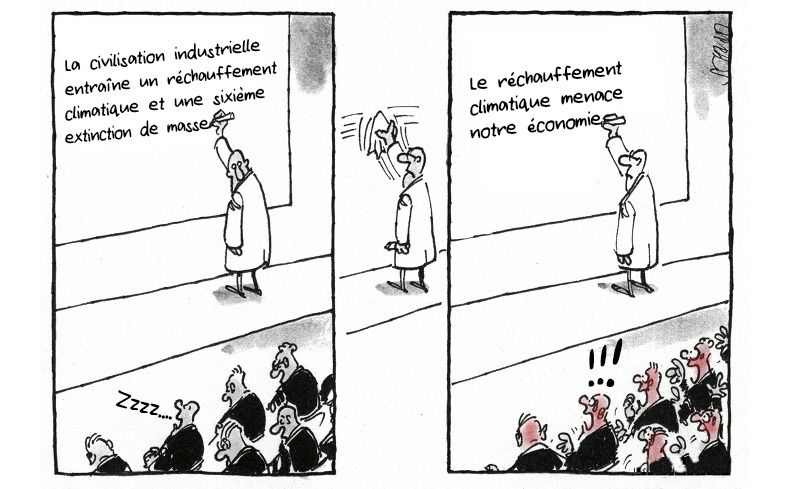 La civilisation industrielle
entraîne un réchauffement
climatique et une sixième
extinction de masse
Zzzz....
Le réchauffement
climatique menace
notre économie
!!!